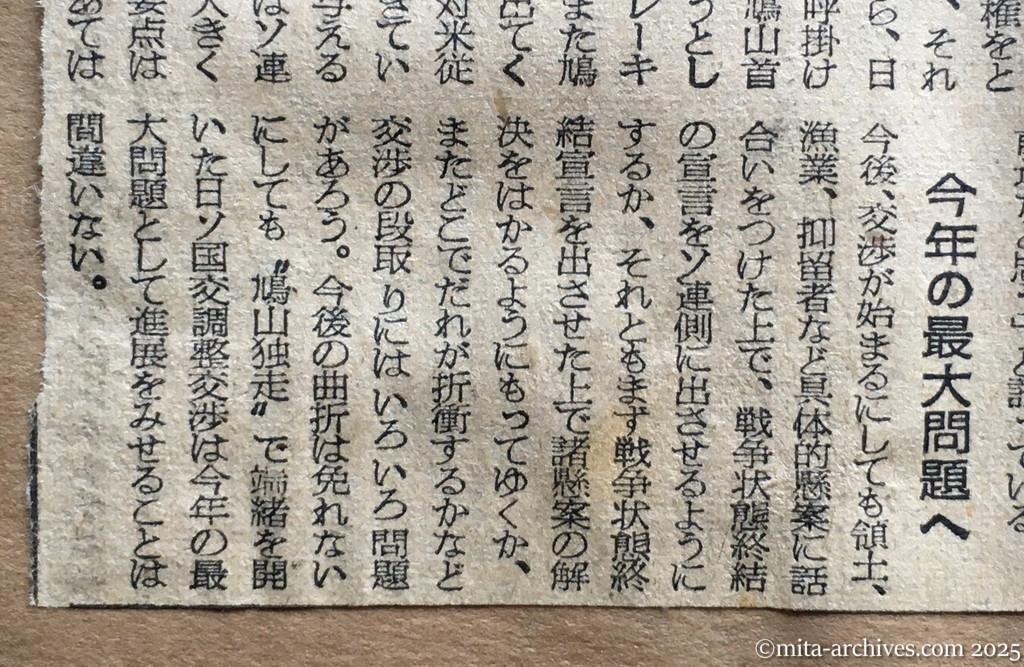 権をと
、それ
ら、日
呼掛け
鳩山首
うとし
レーキ
また鳩
出てく
対米従
きてい
与える
はソ連
大きく
要点は
めては
今年の最大問題へ
今後、交渉が始まるにしても領土、
漁業、抑留者など具体的懸案に話
合いをつけた上で、戦争状態終結
の宣言をソ連側に出させるように
するか、それともまず戦争状態終
結宣言を出させた上で諸懸案の解
決をはかるようにもってゆくか、
またどこでだれが折衝するかなど
交渉の段取りにはいろいろ問題
があろう。今後の曲折は免れない
にしても〝鳩山独走〟で端緒を開
いた日ソ国交調整交渉は今年の最
大問題として進展をみせることは
間違いない。
©mita-archives.com 2025